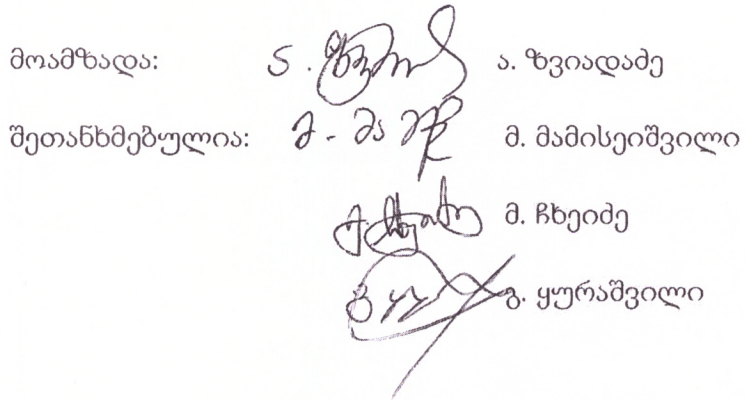 მოამზადა: ა. ზვიადაძე
შეთანხმებულია: მ. მამისეიშვილი
მ. ჩხეიძე
გ. ყურაშვილი